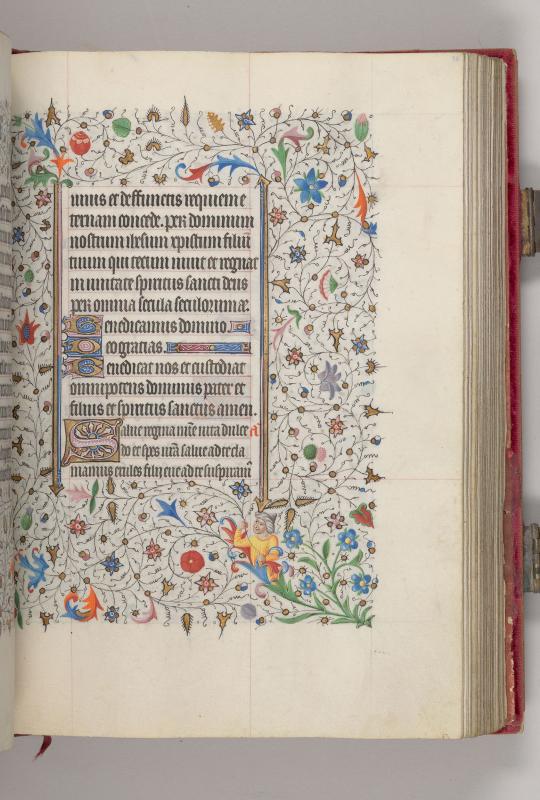 mus et deffunctis requiem e
ternam concede. per dominum
nostrum ihesum xpistum filiū
tuum qui tecum viuit et regnat
in unitate spiritus sancti deus
per omnia secula seculorum a.
Benedicamus domino.
Deo gratias.
Benedicat nos et custodiat
omnipotens dominus pater et
filius et spiritus sanctus amen.
Salue regina mīe vita dulce a
do et spes nr̄a salue ad te cla
mamus exules filii eue ad te suspiram⁹